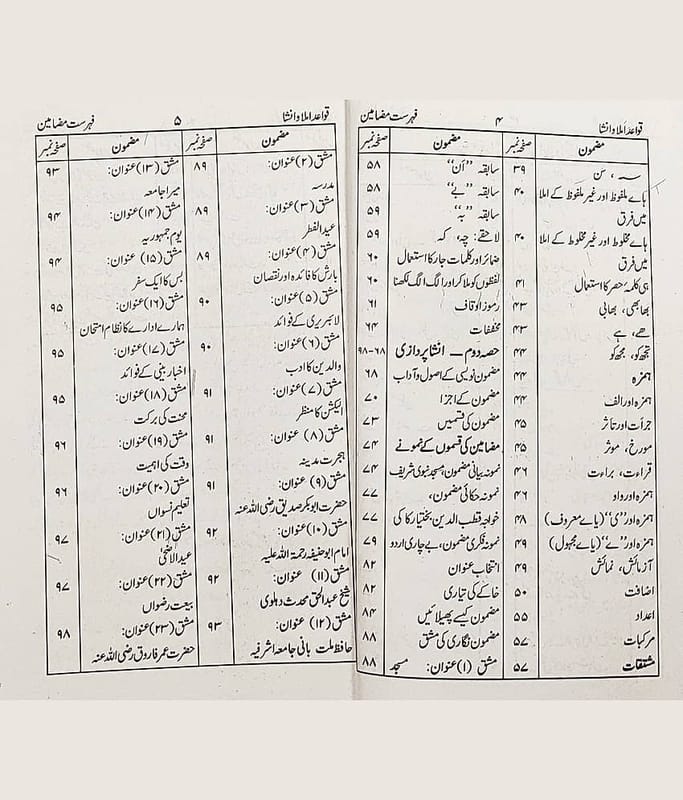 قواعد املا و انشا
۴
فہرست مضامین
مضمون
صفحہ نمبر
مضمون
صفحہ نمبر
سہ، سن
۳۹
ہاے ملفوظ اور غیر ملفوظ کے املا
۴۰
میں فرق
ہاے مخلوط اور غیر مخلوط کے املا
۴۰
میں فرق
ہی کلمۂ حصر کا استعمال
۴۱
بھابھی، بھابی
۴۳
ھے، ہے
۴۳
تجھ کو، مجھ کو
۴۴
ہمزہ
۴۴
ہمزہ اور الف
۴۴
جرأت اور تاثر
۴۵
مورخ، موثر
۴۵
قراءت، براءت
۴۶
ہمزہ اور واو
۴۶
ہمزہ اور ”ی“ (یاے معروف)
۴۸
ہمزہ اور ”ے“ (یاے مجہول)
۴۹
آزمائش، نمائش
۴۹
اضافت
۵۰
اعداد
۵۵
مرکبات
۵۷
مشتقات
۵۷
سابقہ ”اَن“
۵۸
سابقہ ”بے“
۵۸
سابقہ ”بہ“
۵۹
لاحقے: چہ، کہ
۵۹
ضمائر اور کلمات جار کا استعمال
۶۰
لفظوں کو ملا کر اور الگ الگ لکھنا
۶۰
رموز اوقاف
۶۱
مخففات
۶۴
حصہ دوم – انشا پردازی
۶۸-۹۸
مضمون نویسی کے اصول و آداب
۶۸
مضمون کے اجزا
۷۰
مضمون کی قسمیں
۷۳
مضامین کی قسموں کے نمونے
۷۴
نمونہ بیانی مضمون، مسجد نبوی شریف
۷۴
نمونہ حکائی مضمون،
۷۷
خواجہ قطب الدین بختیار کاکی
۷۷
نمونہ فکری مضمون، بے چاری اردو
۷۹
انتخاب عنوان
۸۲
خاکے کی تیاری
۸۲
مضمون کیسے پھیلائیں
۸۴
مضمون نگاری کی مشق
۸۸
مشق (۱) عنوان: مسجد
۸۸
قواعد املا و انشا
۵
فہرست مضامین
مضمون
صفحہ نمبر
مضمون
صفحہ نمبر
مشق (۲) عنوان:
۸۹
مدرسہ
مشق (۳) عنوان:
۸۹
عید الفطر
مشق (۴) عنوان:
۸۹
بارش کا فائدہ اور نقصان
مشق (۵) عنوان:
۹۰
لائبریری کے فوائد
مشق (۶) عنوان:
۹۰
والدین کا ادب
مشق (۷) عنوان:
۹۱
الیکشن کا منظر
مشق (۸) عنوان:
۹۱
ہجرت مدینہ
مشق (۹) عنوان:
۹۱
حضرت ابوبکر صدیق رضی اللہ عنہ
مشق (۱۰) عنوان:
۹۲
امام ابوحنیفہ رحمۃ اللہ علیہ
مشق (۱۱) عنوان:
۹۲
شیخ عبدالحق محدث دہلوی
مشق (۱۲) عنوان:
۹۳
حافظ ملت بانی جامعہ اشرفیہ
مشق (۱۳) عنوان:
۹۳
میرا جامعہ
مشق (۱۴) عنوان:
۹۴
یوم جمہوریہ
مشق (۱۵) عنوان:
۹۴
بس کا ایک سفر
مشق (۱۶) عنوان:
۹۵
ہمارے ادارے کا نظام امتحان
مشق (۱۷) عنوان:
۹۵
اخبار بینی کے فوائد
مشق (۱۸) عنوان:
۹۵
محنت کی برکت
مشق (۱۹) عنوان:
۹۶
وقت کی اہمیت
مشق (۲۰) عنوان:
۹۶
تعلیم نسواں
مشق (۲۱) عنوان:
۹۷
عید الاضحیٰ
مشق (۲۲) عنوان:
۹۷
بیعت رضواں
مشق (۲۳) عنوان:
۹۸
حضرت عمر فاروق رضی اللہ عنہ